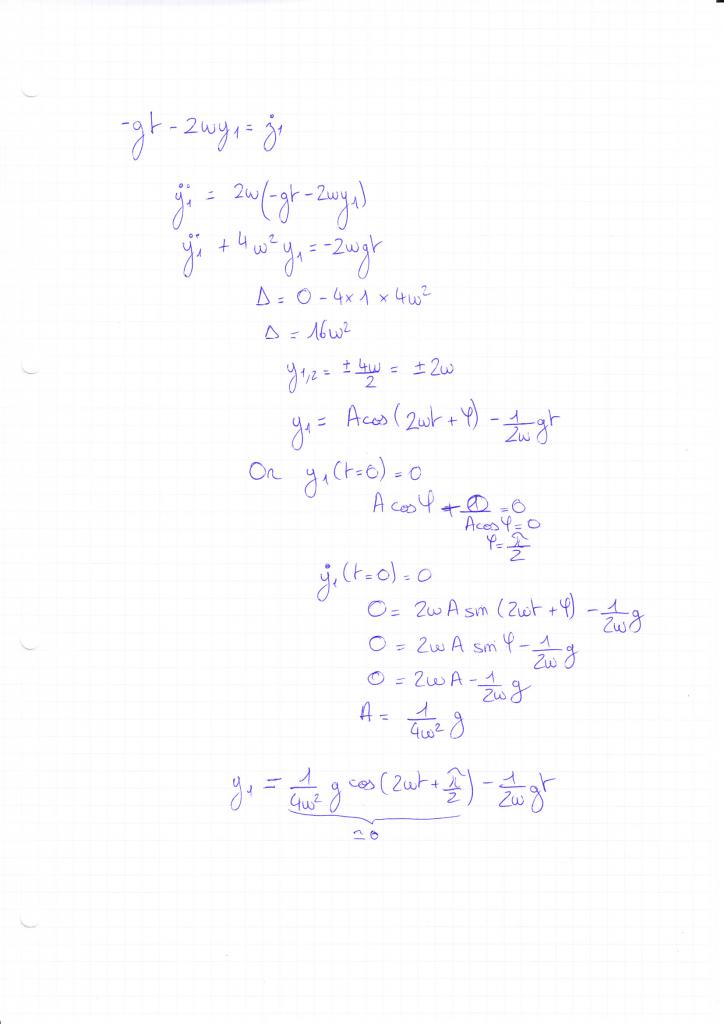 -gt - 2wy₁ = ż₁
ÿ₁ = 2w(-gt - 2wy₁)
ÿ₁ + 4w²y₁ = -2wgt
Δ = 0 - 4 × 1 × 4w²
Δ = 16w²
y₁,₂ = ± 4w/2 = ± 2w
y₁ = A cos(2wt + φ) - 1/2w gt
Or y₁(t=0) = 0
A cos φ + 0 = 0
A cos φ = 0
φ = π/2
ẏ₁(t=0) = 0
0 = 2wA sin(2wt + φ) - 1/2w g
0 = 2wA sin φ - 1/2w g
0 = 2wA - 1/2w g
A = 1/4w² g
y₁ = 1/4w² g cos(2wt + π/2) - 1/2w gt
≃ 0